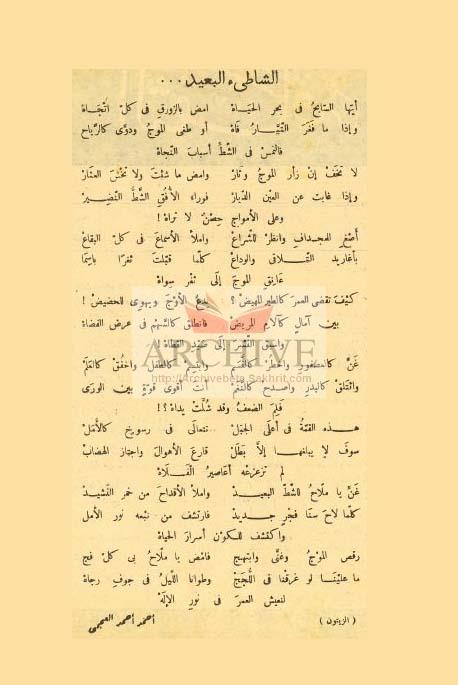 الشاطىء البعيد ...
أيّها السّابحُ فى بحر الحيَـاة امض بالزورقِ فى كلّ اتّجـاهْ
وإذا ما فَغَرَ التّيّـارُ فَاهْ أو طغى الموجُ ودوّى كالرّياح
فالتمسْ فى الشّطّ أسبابَ النّجاة
لا تخَفْ إنْ زأر الموجُ وثَارْ وامض ما شئتَ ولا تخْشَ العثارْ
وإذا غابت عن العيْن الدّيارْ فوراءَ الأُفُقِ الشّطُّ النّضِيرْ
وعلى الأمواجِ حِصْنٌ لا تراهْ !
أصْغِ للمجدافِ وانظرْ للشّراعْ واملأ الأسماعَ فى كلّ البقاعْ
بأغاريد التّـلاقى والوداعْ كلّما قبّلتَ ثغرًا باسِمًا
عانِقِ الموجَ إلى ثغرٍ سِواهْ
كيْفَ تقضى العمرَ كالطيرِ المهيضْ ؟ يدعُ الأوْجَ ويهوى للحضيضْ !
بين آمالٍ كآلامِ المريضْ فانطلقْ كالسّهم فى عرضِ الفضاءْ
واسبق النّسْرَ إلى
ARCHIVE
http://Archivebeta.Sakhrit.com
غَنِّ كالعصفورِ واخطرْ كالنّسَمْ وابتسمْ كالطفلِ واخفُقْ كالعَلَمْ
وائتلقْ كالبدرِ واصدحْ كالنّغَمْ أنتَ أقوى قوّةٍ بين الورَى
فلِمَ الضعفُ وقد شُلّتْ يداهْ ؟!
هـذه القمّةُ فى أعلَى الجبَلْ تتعالَى فى رسوخٍ كالأمَلْ
سوفَ لا يبلغهـا إلاّ بَطَلْ قارعَ الأهوالَ واجتازَ الهضابْ
لم تزعزعْه أعاصيرُ الفَـلاهْ
غَنِّ يا ملاّحُ للشّطّ البعيـدْ واملأ الأقداحَ من خمرِ النّشيـدْ
كلّما لاحَ سنَا فجرٍ جـديدْ فارتشف من نبْعه نورَ الأمل
واكتشف للكوْن أسرارَ الحياهْ
رقص الموْجُ وغنّى وابتهـجْ فامْض يا ملاّحُ بى فى كلّ فجْ
ما علينَـا لو غرقْنا فى اللُّججْ وطوانا اللّيلُ فى جوفِ رجاهْ
لنعيش العمرَ فى نورِ الإلـهْ
( الزيتون ) أحمد أحمد العجمى